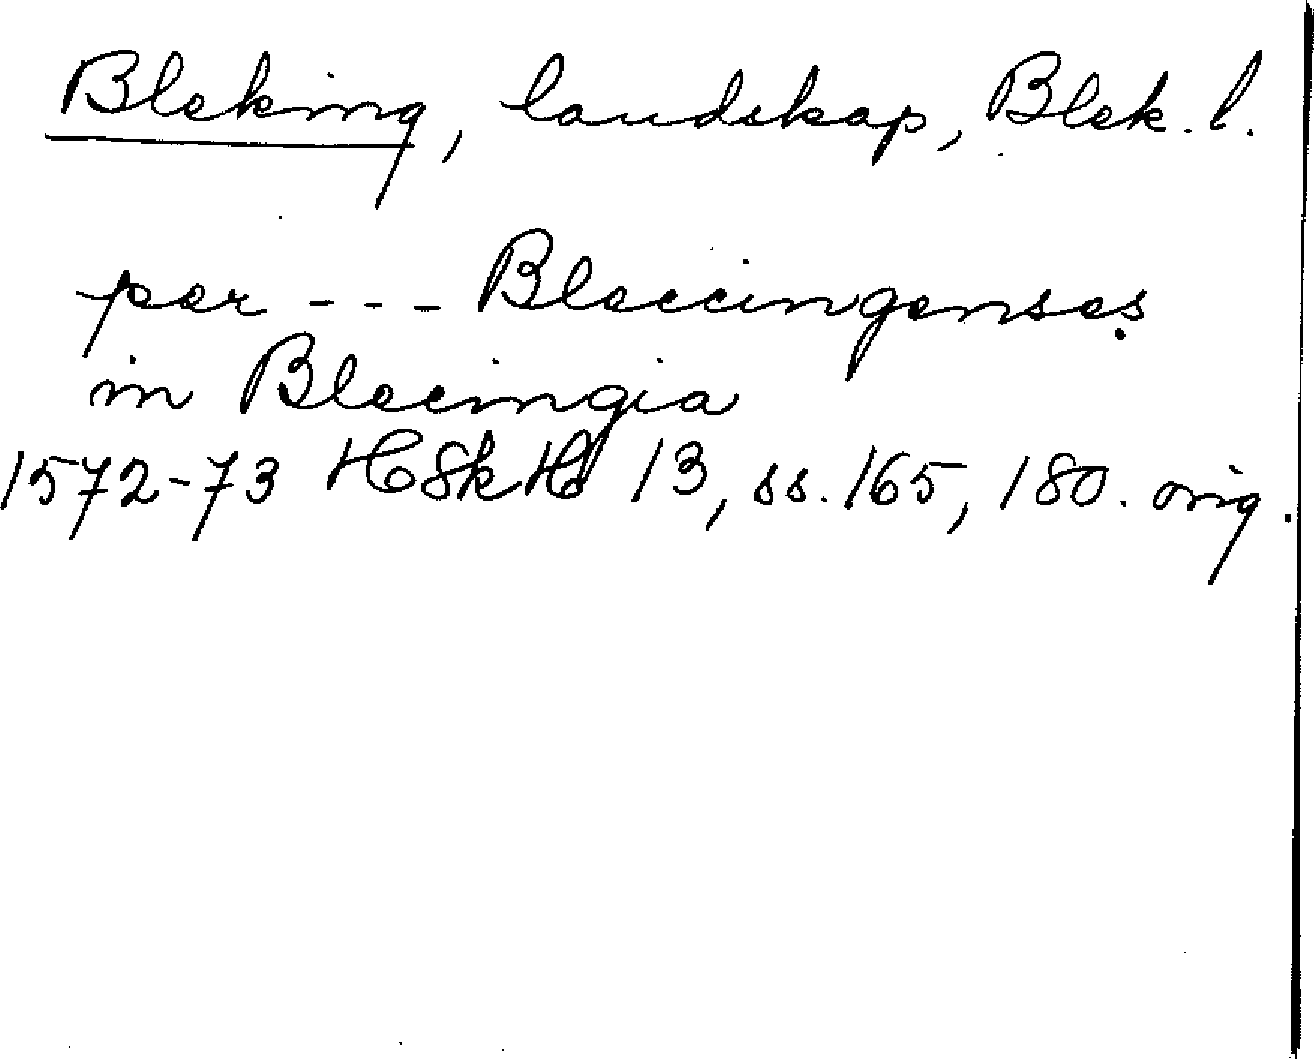 Bleking, landskap, Blek. l.
per - - - Bleccingenses
in Blecingia
1572-73 HSkH 13, ss. 165, 180. orig.